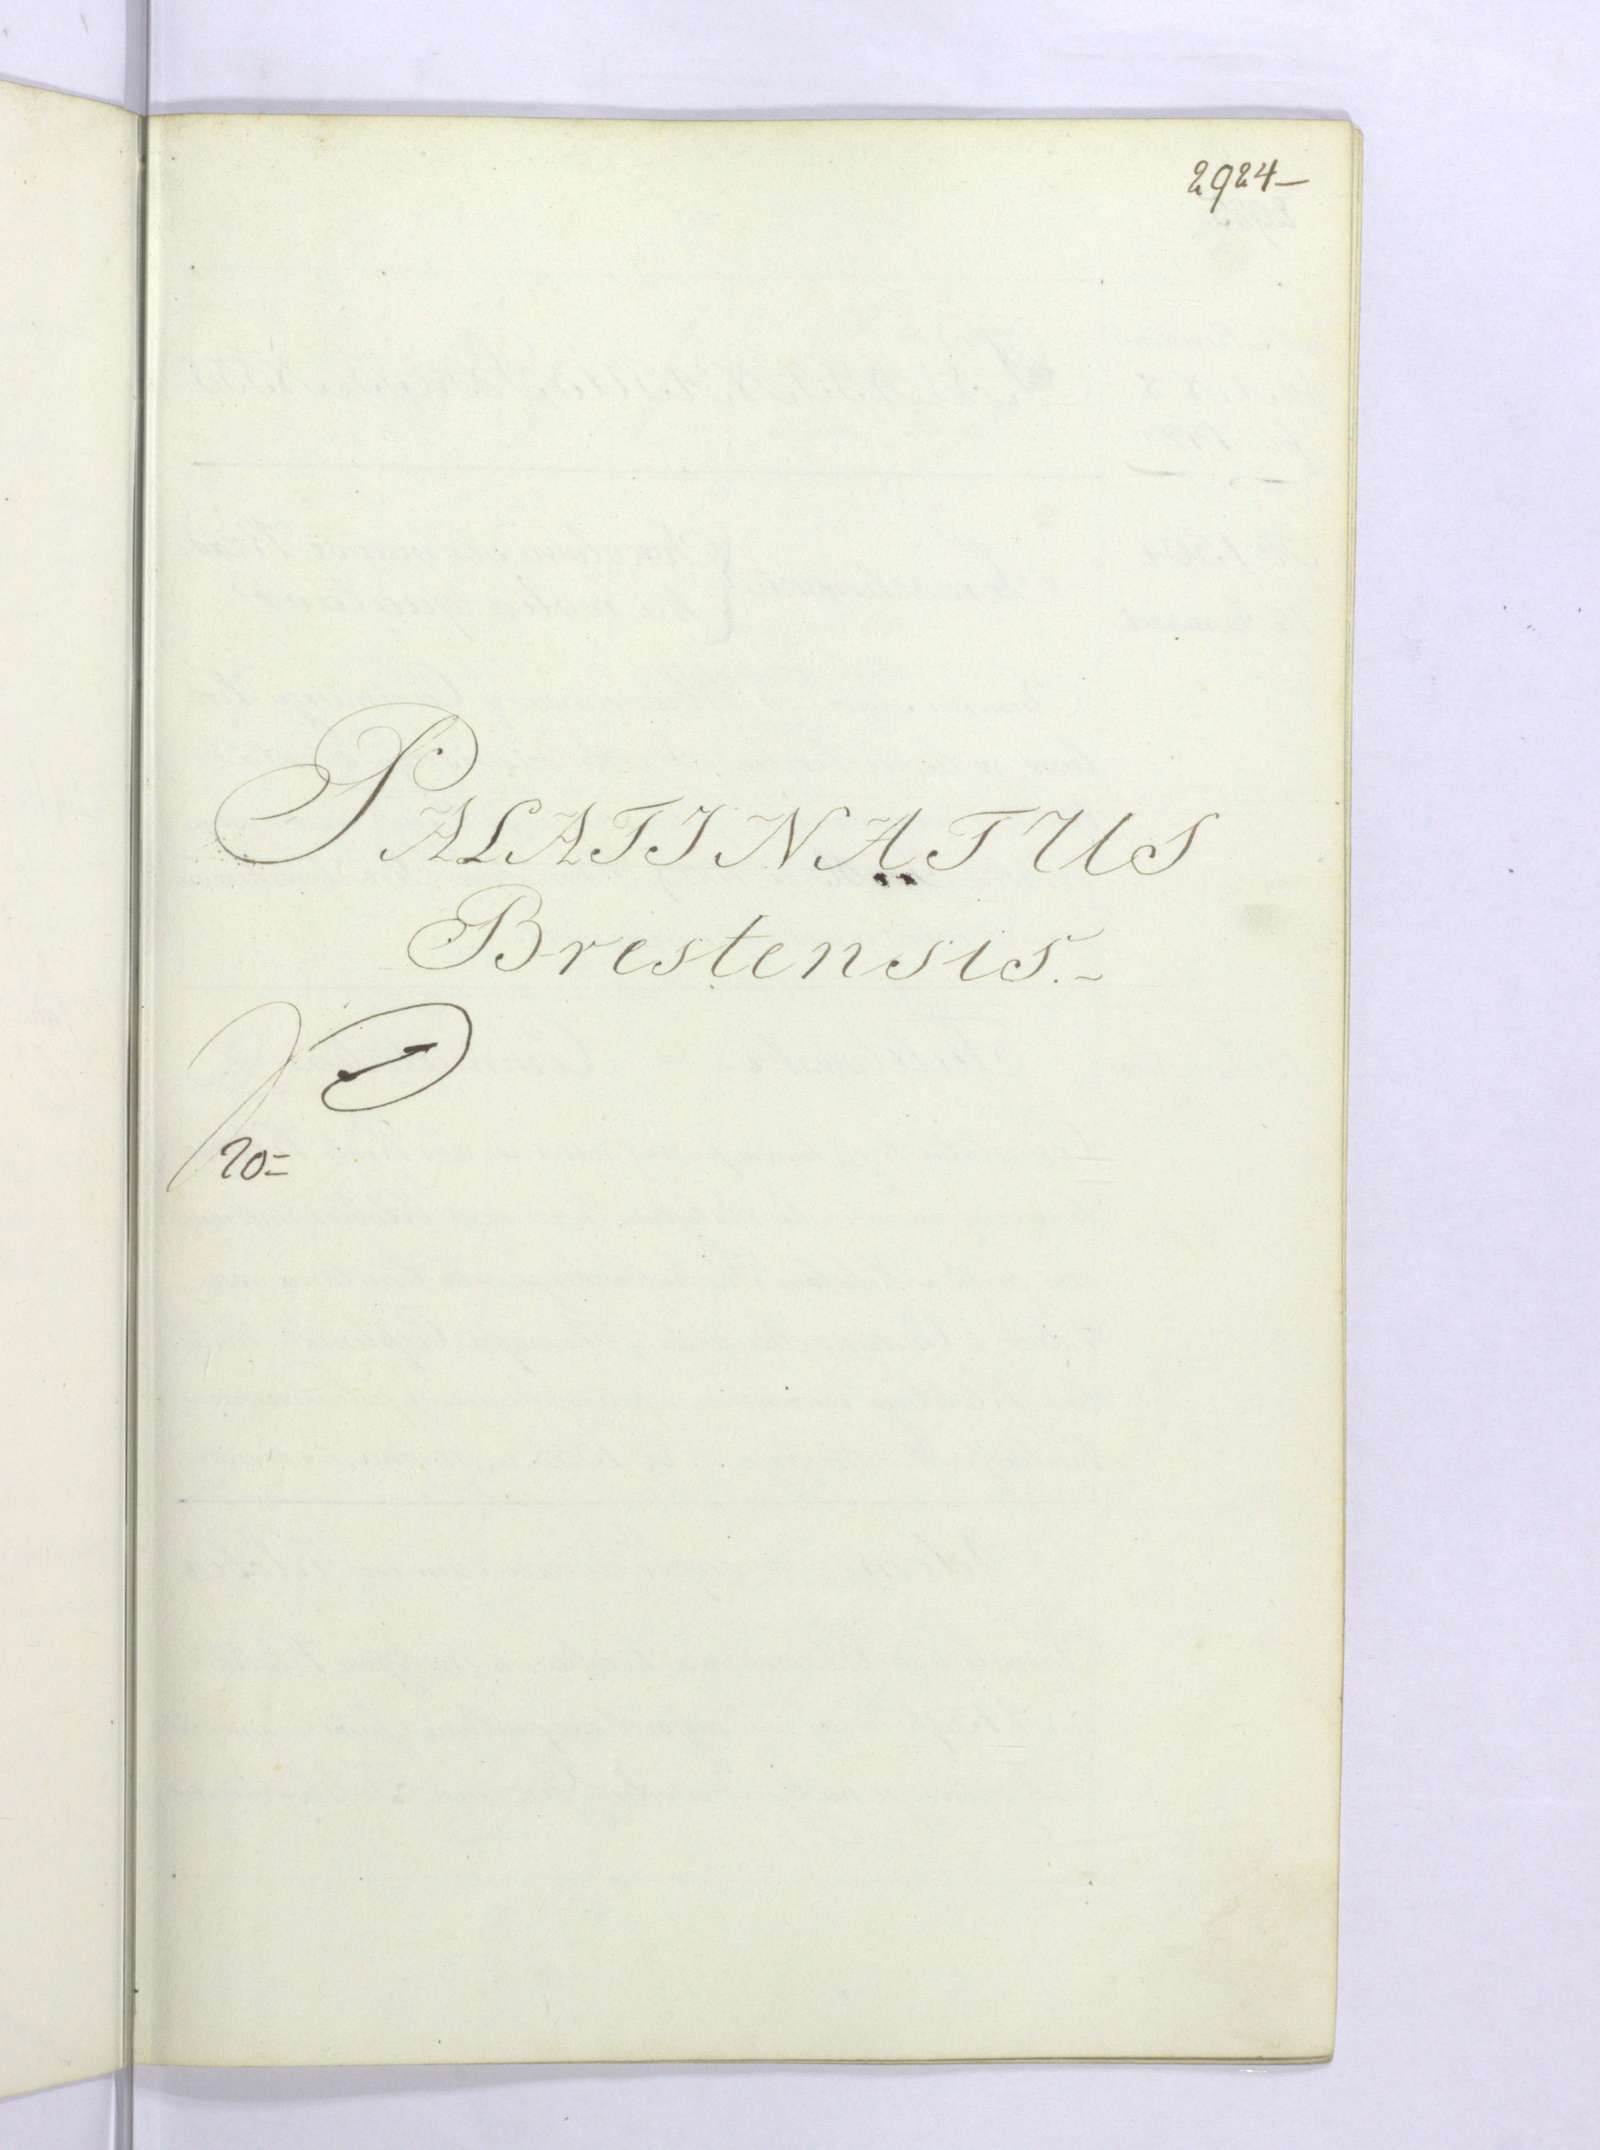 2924-
PALATINATUS
Brestensis.-
20=